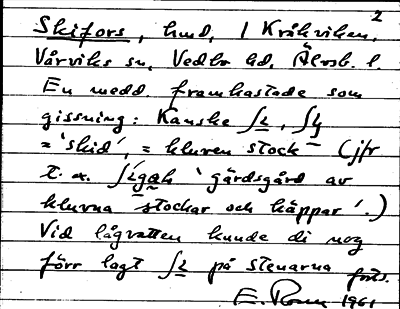 2
Skifors, hmd, / Kråkviken,
Vårviks sn, Vedbo hd, Älvsb. l.
En medd. framkastade som
gissning: Kanske
= 'skid', = kluven stock (jfr
t. ex. 'gärdsgård av
kluvna stockar och käppar'.)
Vid lågvatten kunde di nog
förr lagt på stenarna forts.
E. 1961